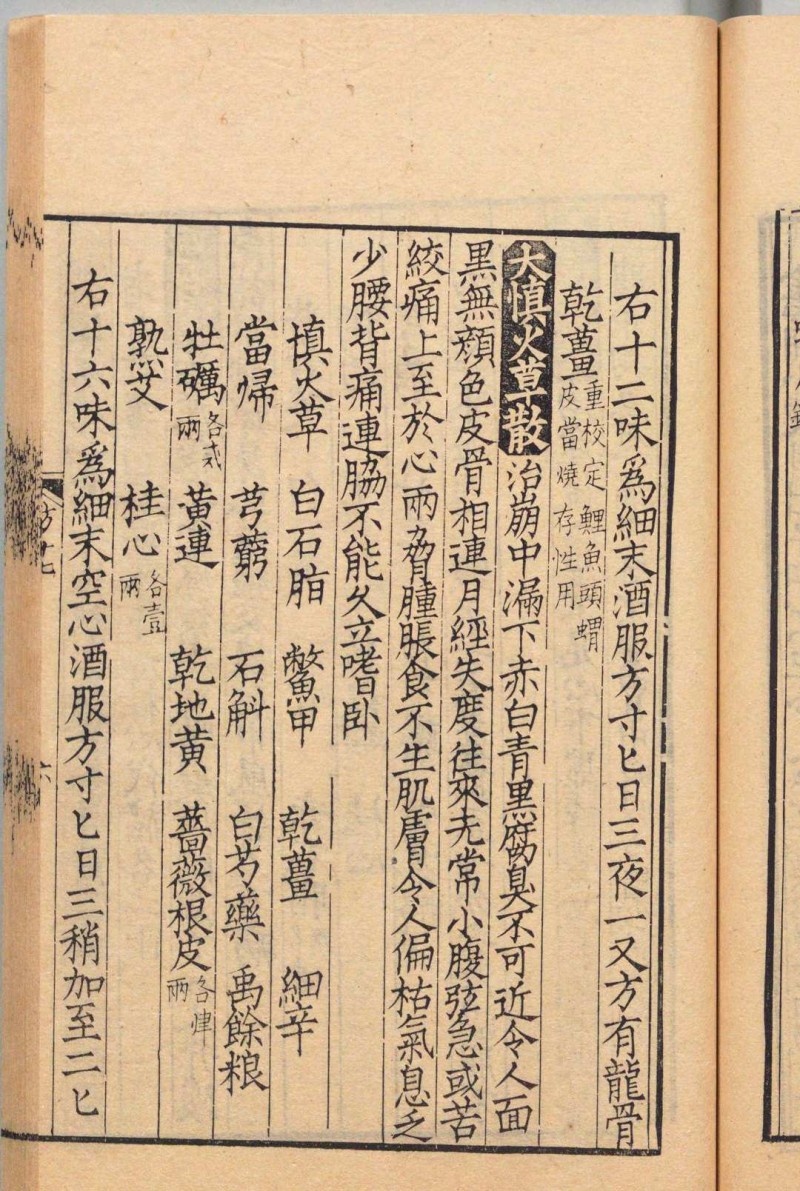 右十二味爲細末酒服方寸匕日三夜一又方有龍骨
乾薑重校定鯉魚頭蝟皮當燒存性用
大慎火草散治崩中漏下赤白青黑腐臭不可近令人面
黑無顔色皮骨相連月經失度往來无常小腹弦急或苦
絞痛上至於心兩脅腫脹食不生肌膚令人偏枯氣息乏
少腰背痛連脇不能久立嗜卧
慎火草 白石脂 鱉甲 乾薑 細辛
當歸 芎藭 石斛 白芍藥 禹餘粮
牡礪各弍兩 黃連 乾地黃 薔薇根皮各兩
熟艾 桂心各壹兩
右十六味爲細末空心酒服方寸匕日三稍加至二匕
方十七
六